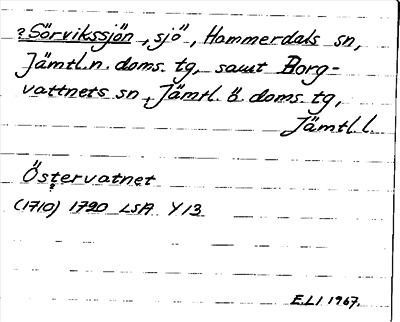 ? Sörvikssjön, sjö, Hammerdals sn,
Jämtl. n. doms. tg, samt Borg-
vattnets sn, Jämtl. ö doms. tg,
Jämtl. l.
Östervatnet
(1710) 1790 LSA Y13
E.L. 1967.